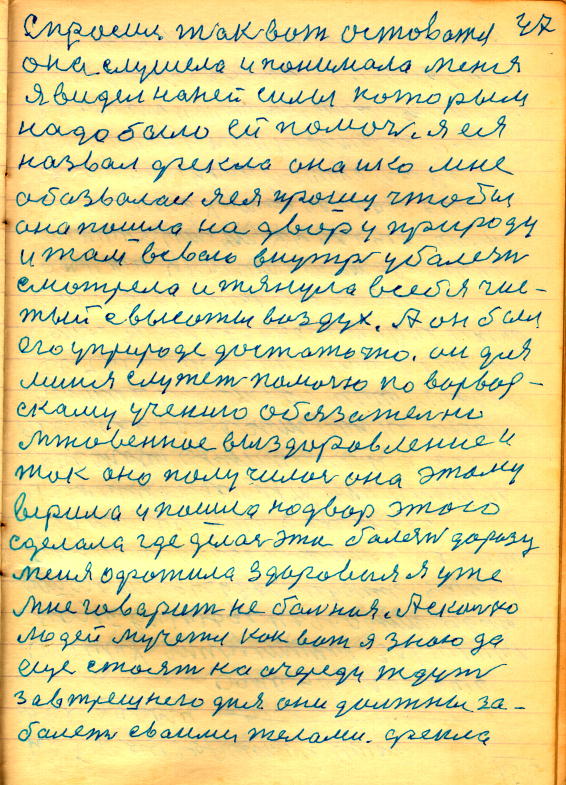 47
спросил так вот остоватя
она слушела и понимала меня
я видел наней силы которым
надо было ей помоч. я ея
назвал фекла она мне
обазвалас я ея прошу чтобы
она пошла на двор у природу
и там всвою внутр убалеки
смотрела и тянула всебя чис-
тый свысоты воздух. А он был
его уприроде достаточно. он для
миня служет помочю по
скаму учению обязателно
мгновенное выздоровление и
так оно получилос она этому
верила и пошла надвор этого
сделала где делас эти балези даразу
меня одротила здоровыя я уже
мне говарит не болния. А сколко
людей мучетя как вот я знаю да
еще стоят на очереди ждут
завтрешнего дня они должны за-
балет своими телами. фекла